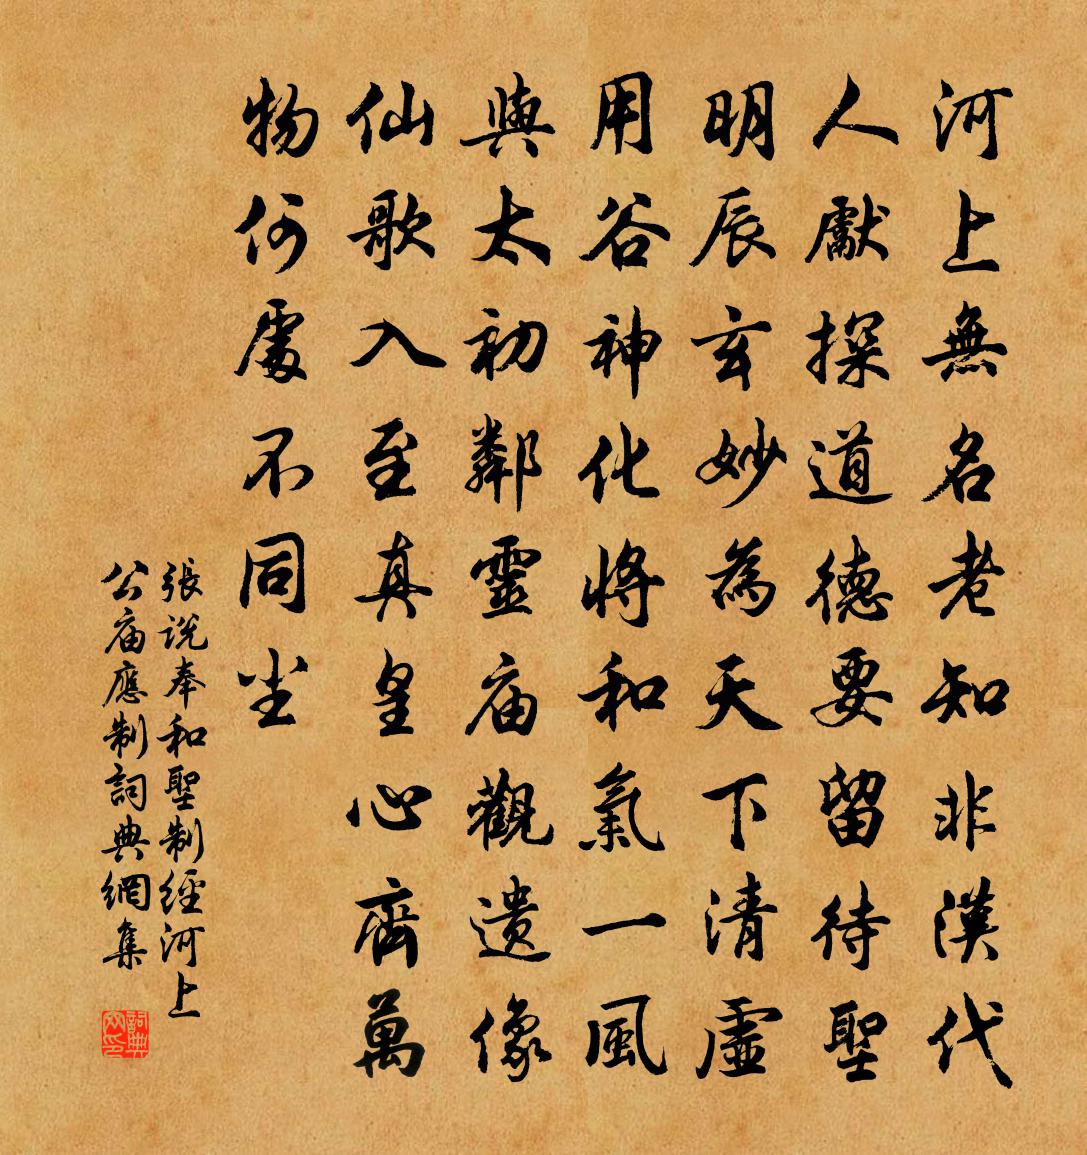 河上無名老知非漢代
人獻探道德要留待聖
明辰玄妙為天下清虛
用谷神化將和氣一風
與太初鄰靈庙觀遗像
仙歌入至真皇心齊萬
物何處不同尘
張说奉和聖制經河上
公庙應制詞典網集
詞典
网印